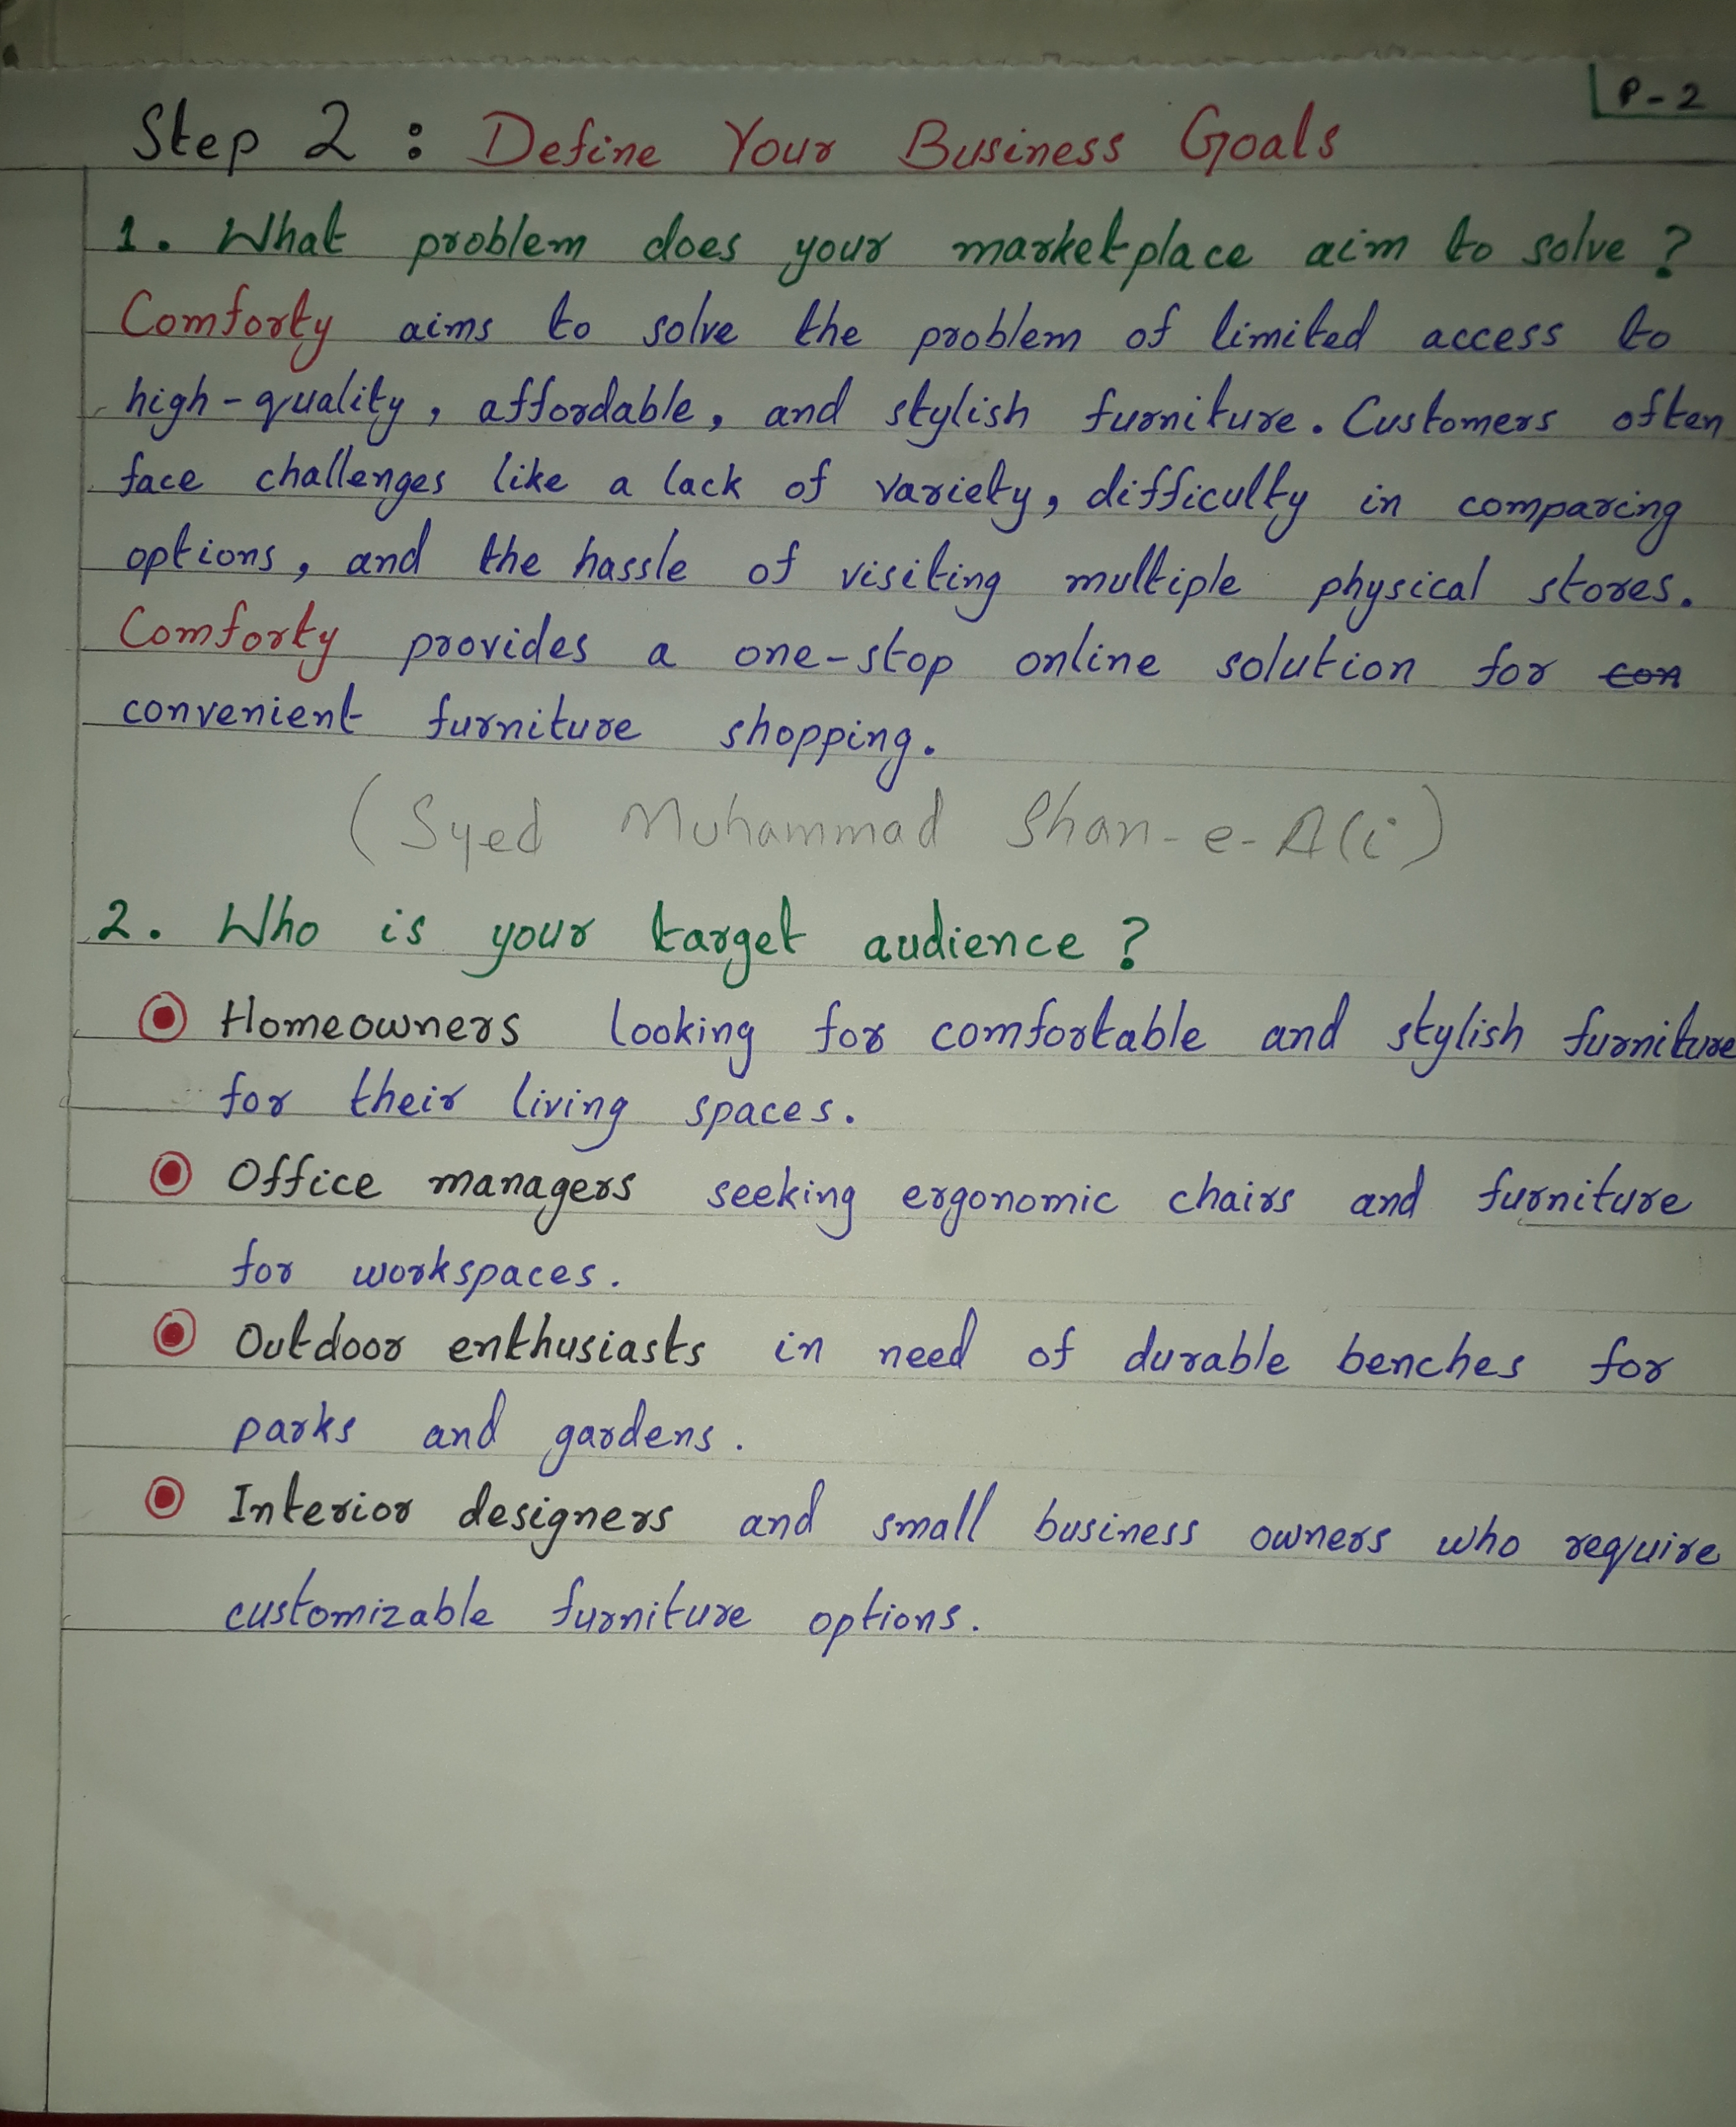 P-2
Step 2 : Define Your Business Goals
1. What problem does your marketplace aim to solve ?
Comforty aims to solve the problem of limited access to
high-quality, affordable, and stylish furniture. Customers often
face challenges like a lack of variety, difficulty in comparing
options, and the hassle of visiting multiple physical stores.
Comforty provides a one-stop online solution for con
convenient furniture shopping.
(Syed Muhammad Shan-e-Ali)
2. Who is your target audience ?
Homeowners looking for comfortable and stylish furniture
for their living spaces.
Office managers seeking ergonomic chairs and furniture
for workspaces.
Outdoor enthusiasts in need of durable benches for
parks and gardens.
Interior designers and small business owners who require
customizable furniture options.